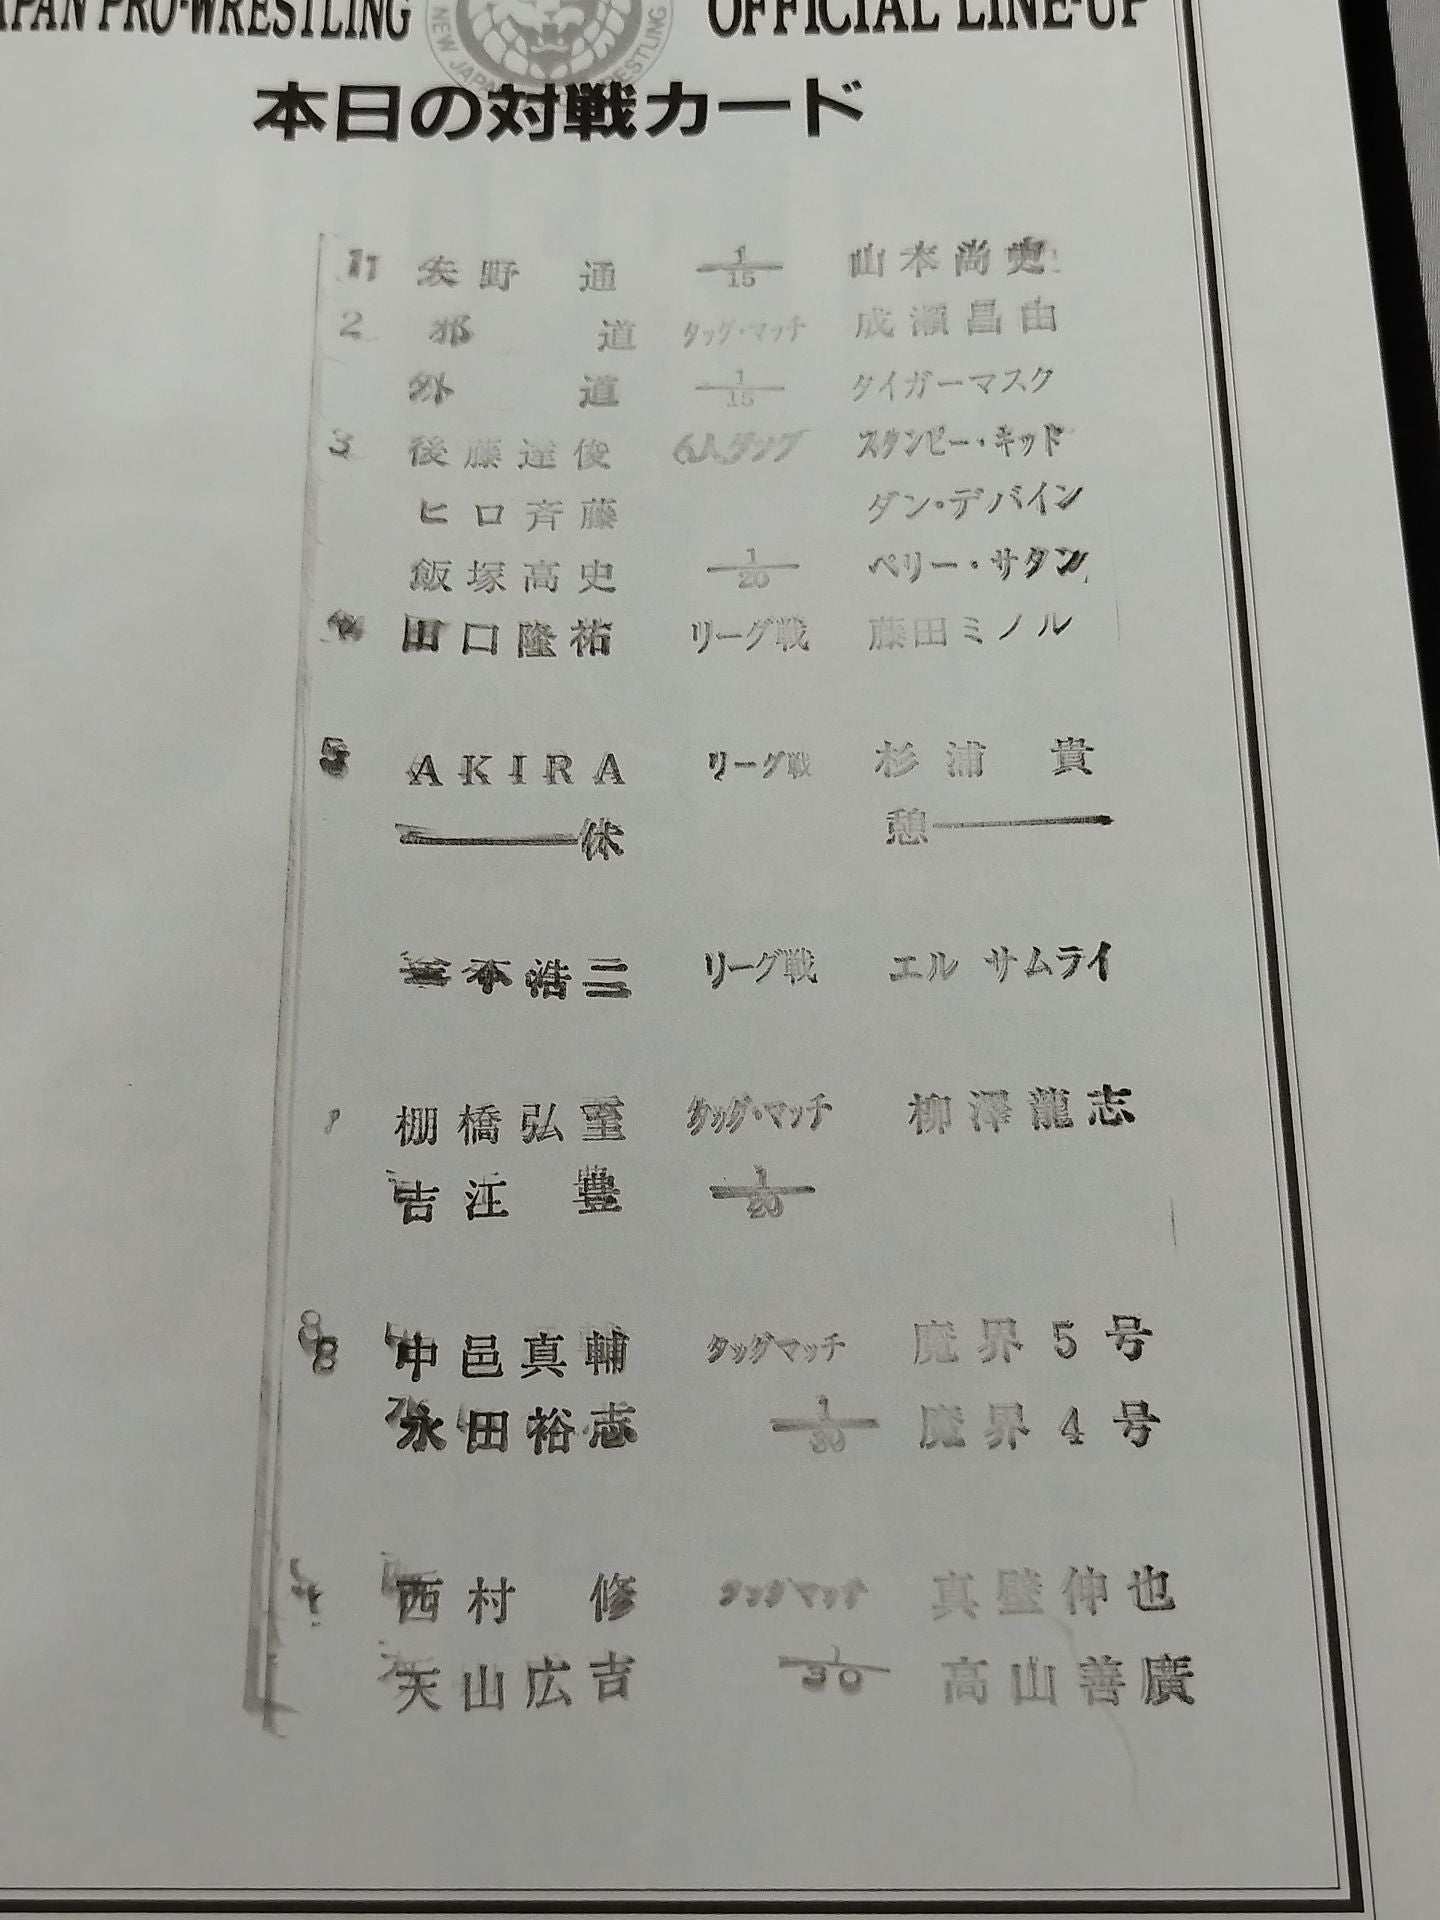 JAPAN PRO-WRESTLING OFFICIAL LINE-UP
NEW JAPAN PRO-WRESTLING
本日の対戦カード
1 矢野 通 1/15 山本尚史
2 邪 道 タッグ・マッチ 成瀬昌由
外 道 1/15 タイガーマスク
3 後藤達俊 6人タッグ スタンピー・キッド
ヒロ斉藤 ダン・デバイン
飯塚高史 1/20 ペリー・サタン
4 田口隆祐 リーグ戦 藤田ミノル
5 AKIRA リーグ戦 杉浦 貴
休 憩
本浩二 リーグ戦 エル サムライ
棚橋弘至 タッグ・マッチ 柳澤龍志
吉江 豊 1/20
8 中邑真輔 タッグマッチ 魔界5号
永田裕志 1/30 魔界4号
西村 修 タッグマッチ 真壁伸也
天山広吉 1/30 高山善廣